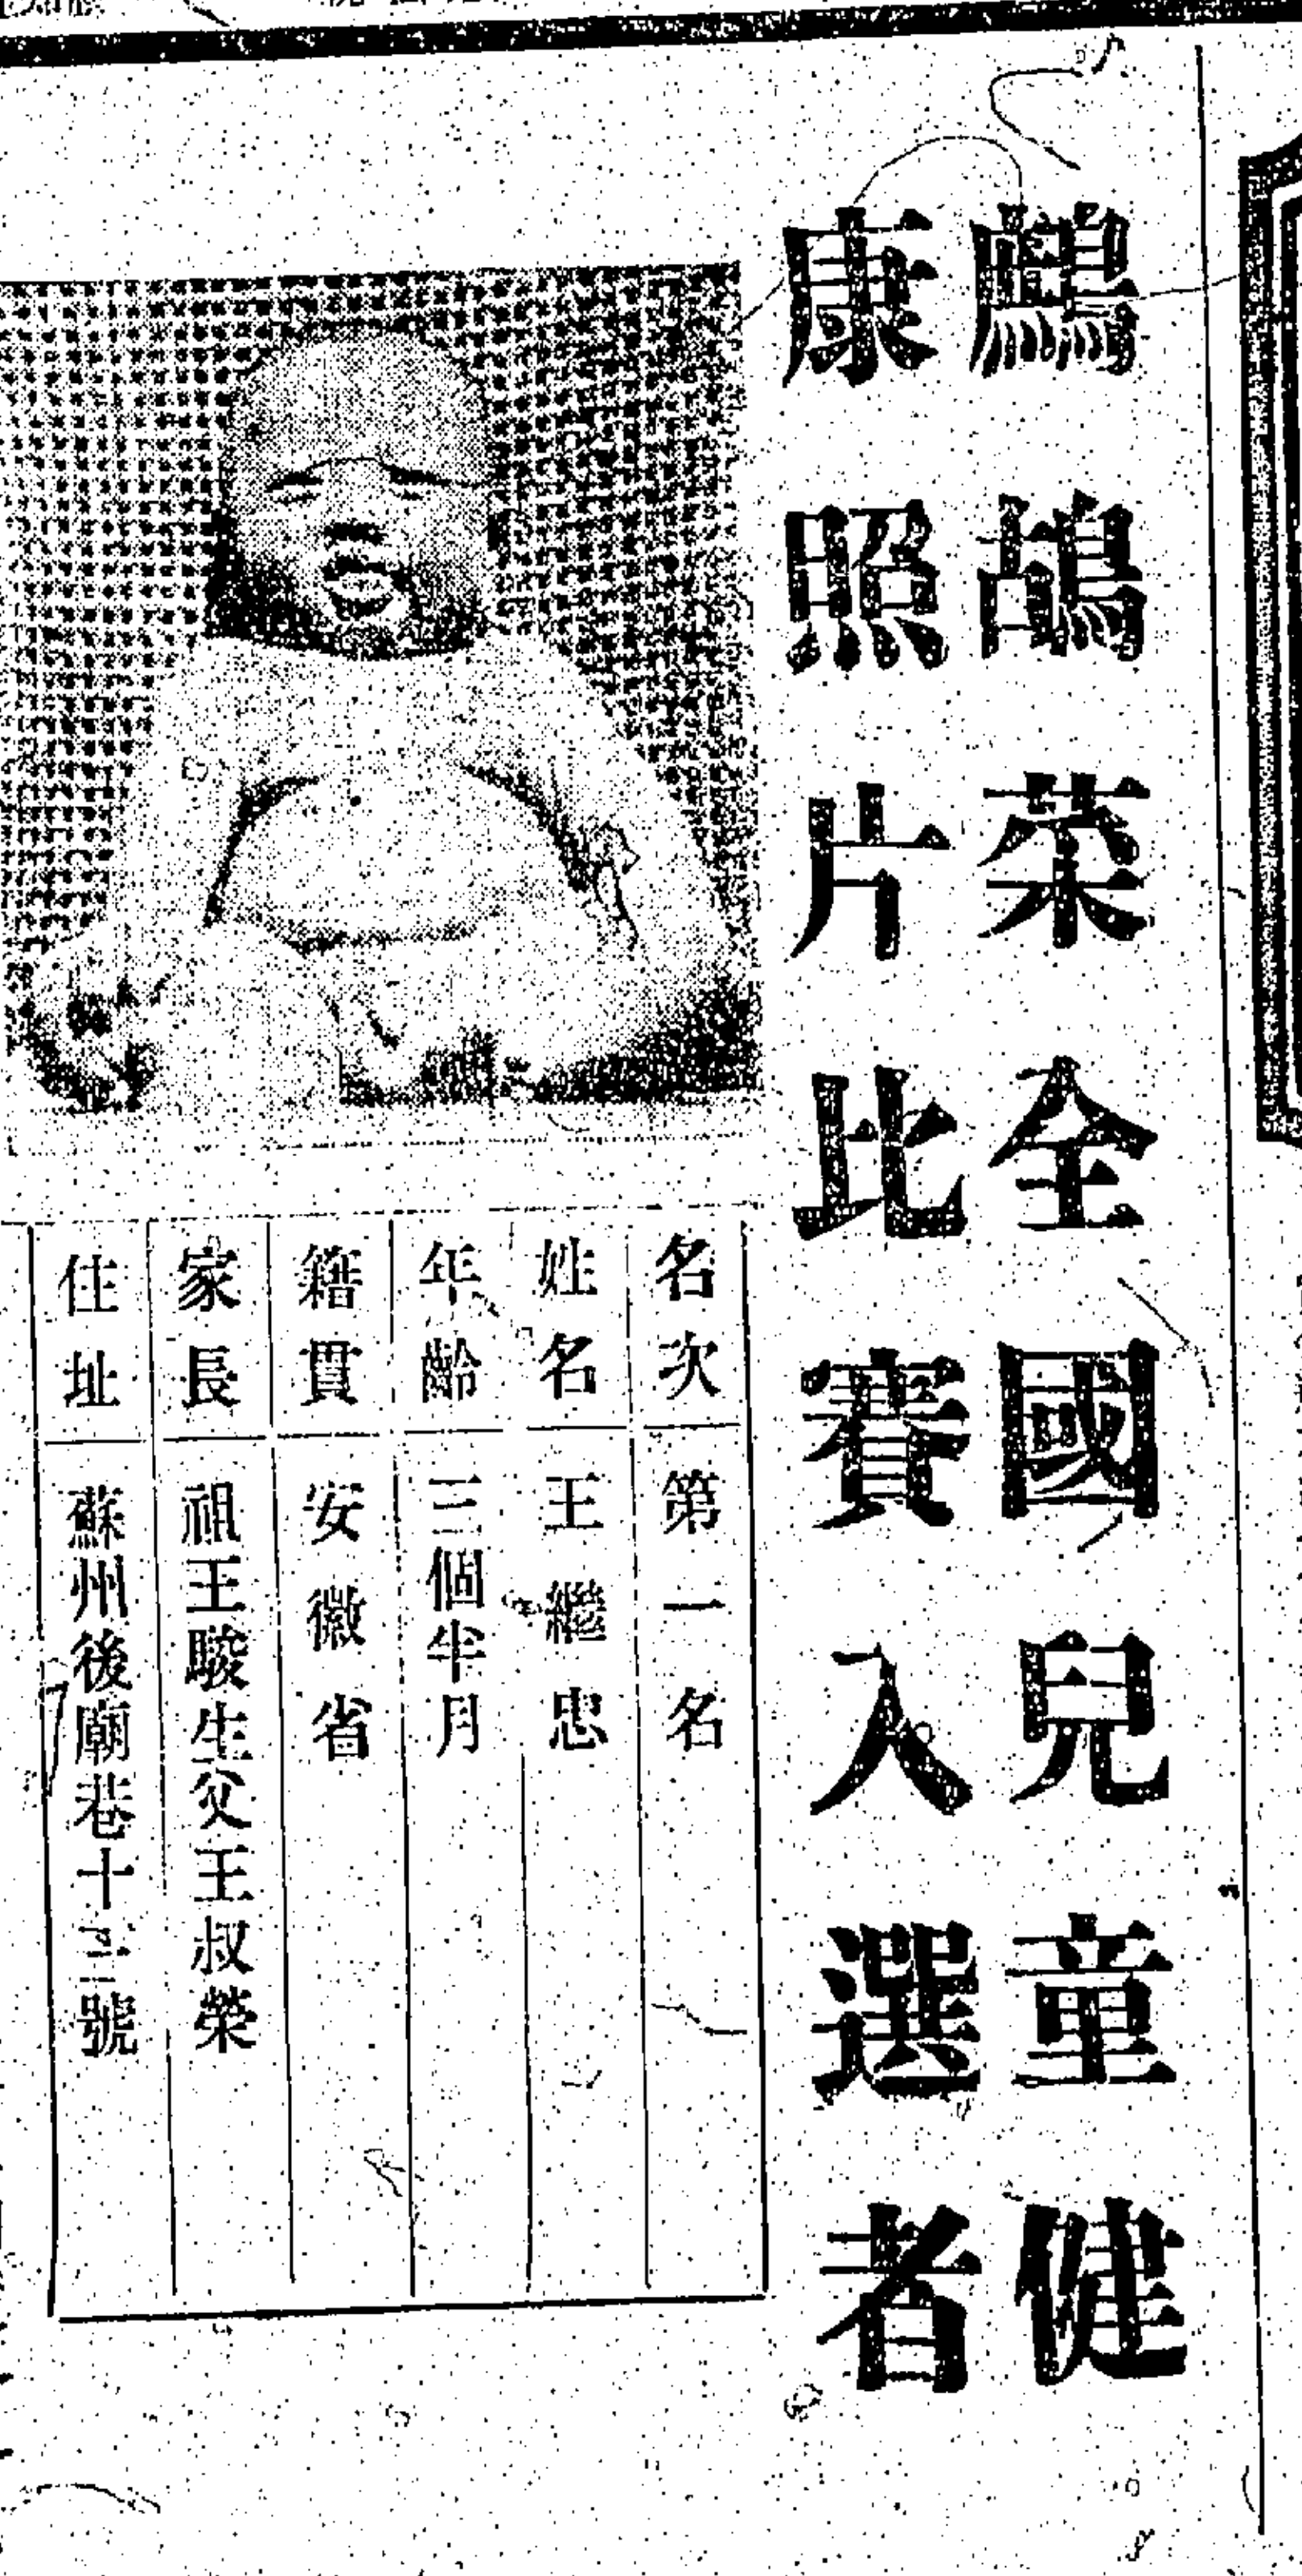 鷓鴣菜全國兒童健
康照片比賽入選者
名次 第一名
姓名 王繼忠
年齡 三個半月
籍貫 安徽省
家長 祖王駿生父王叔榮
住址 蘇州後廟巷十三號